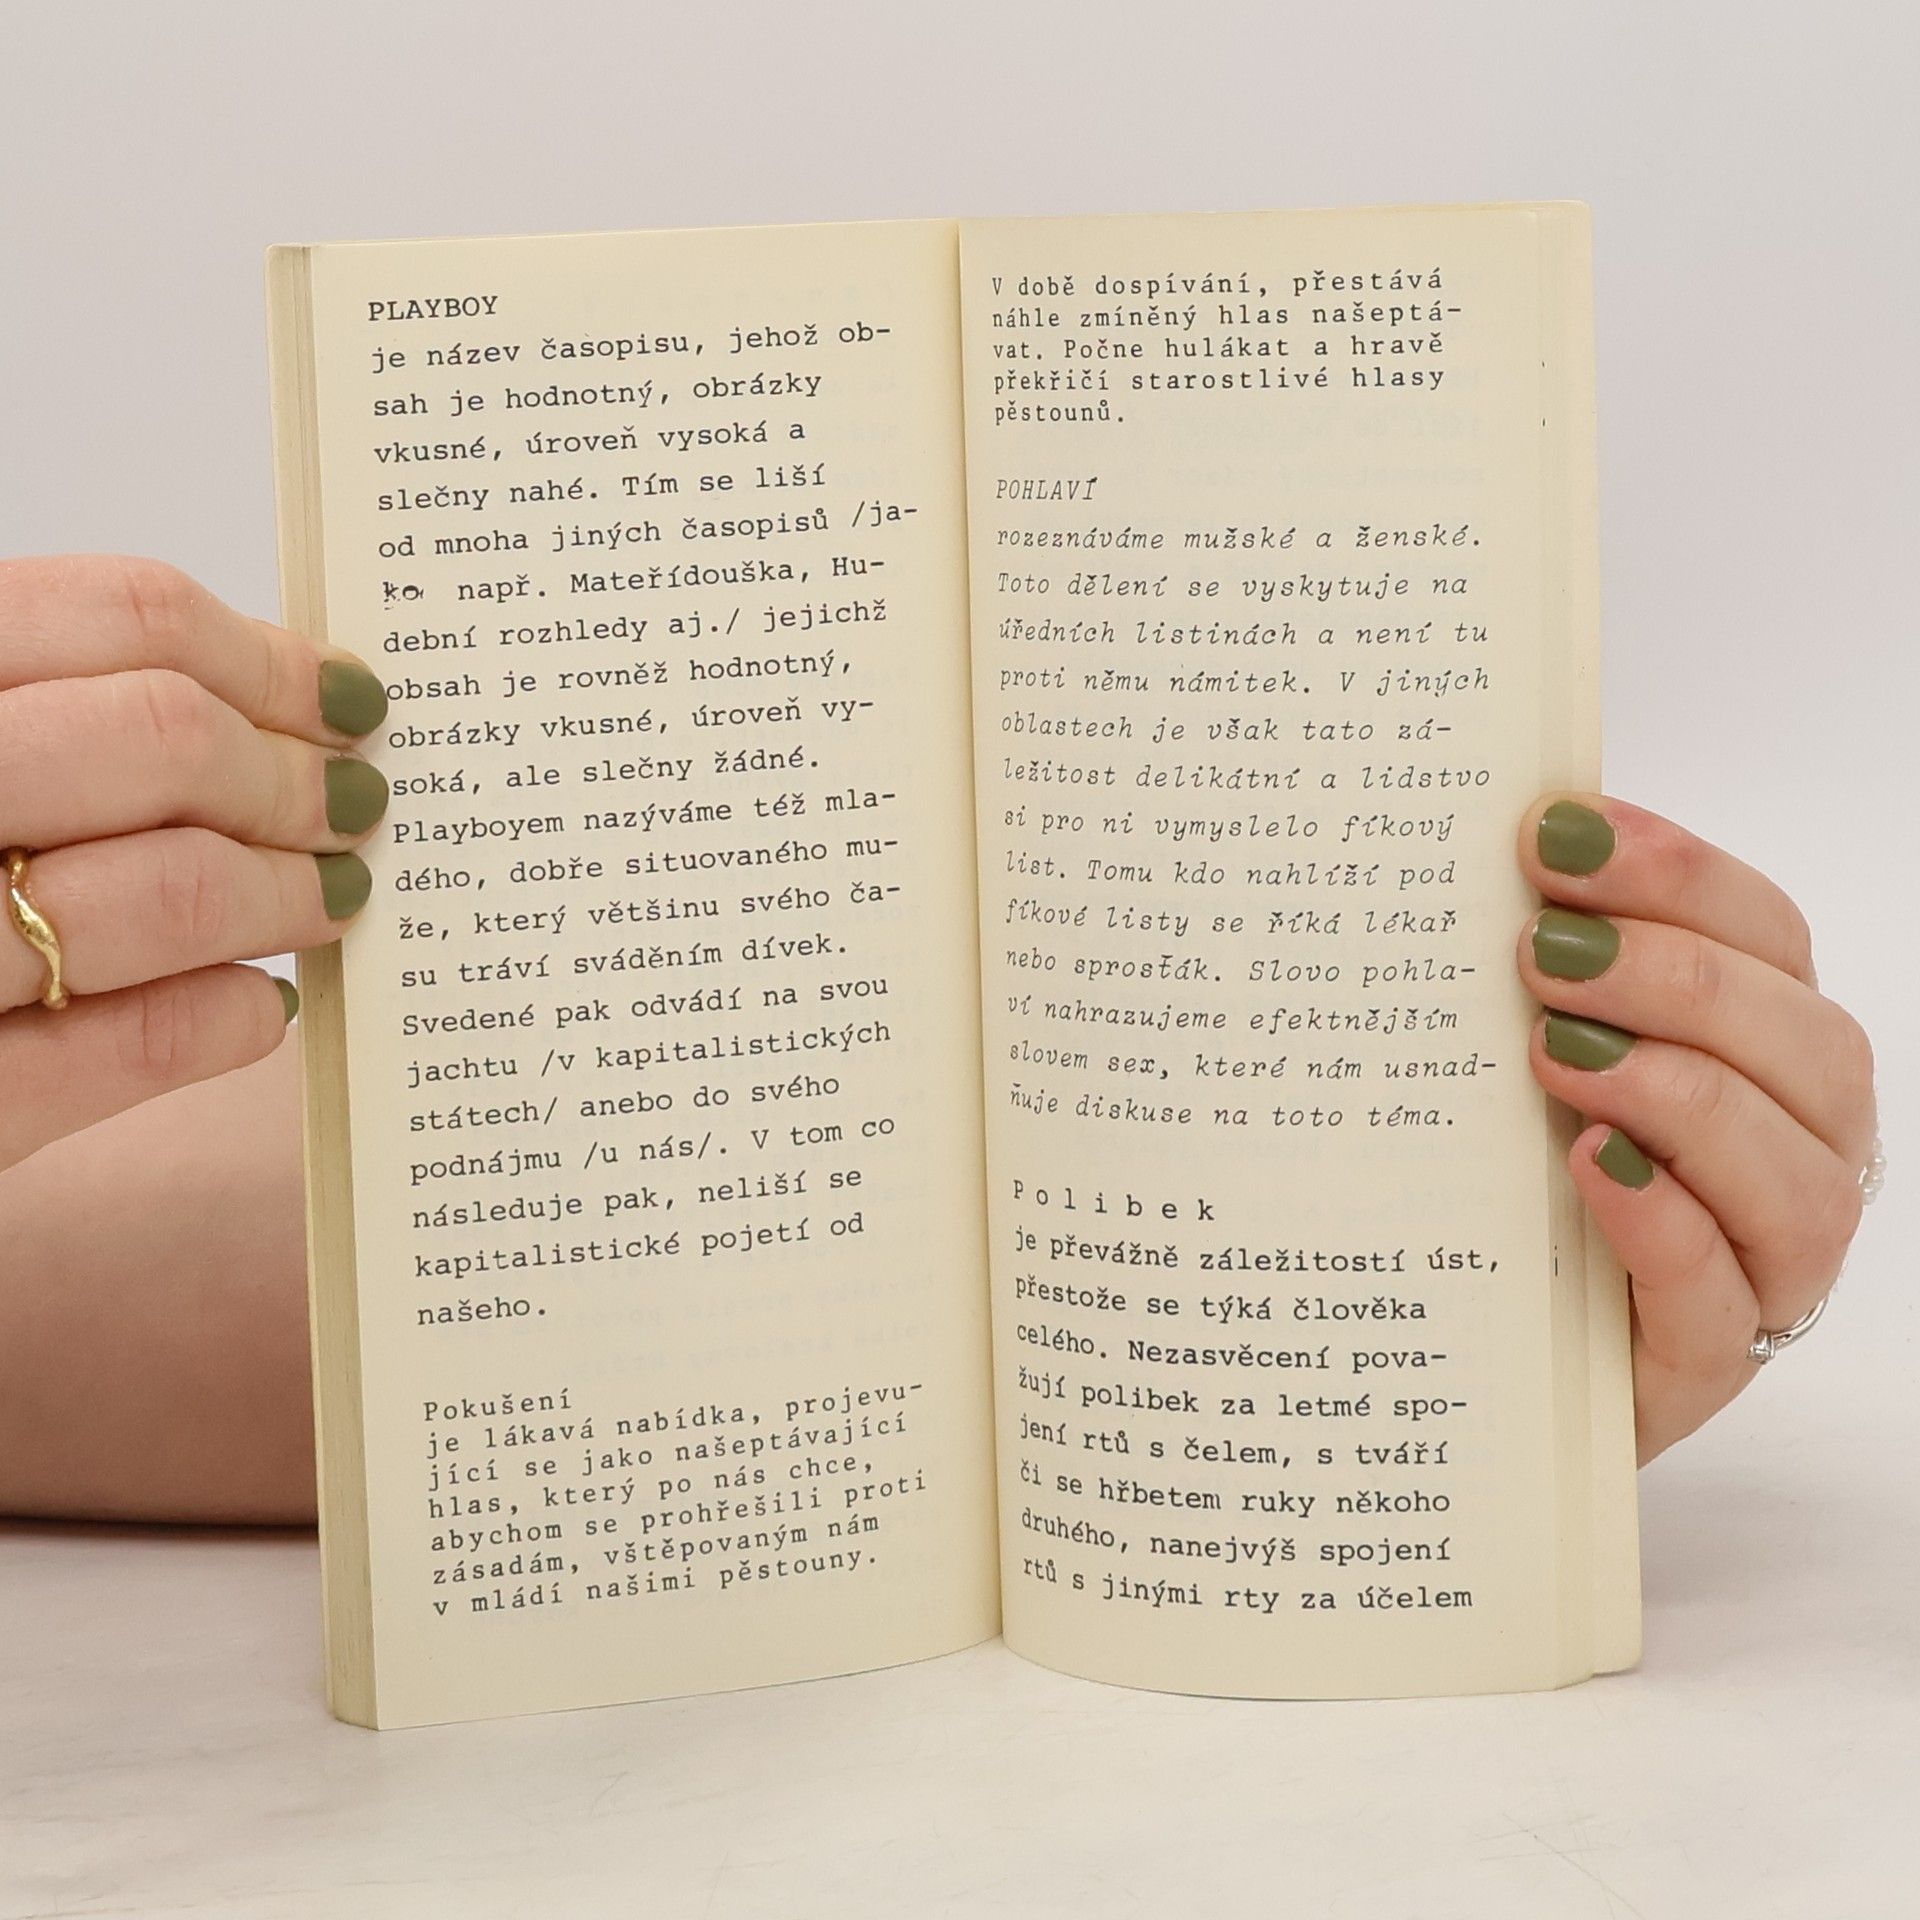 PLAYBOY
je název časopisu, jehož ob-
sah je hodnotný, obrázky
vkusné, úroveň vysoká a
slečny nahé. Tím se liší
od mnoha jiných časopisů /ja-
ko např. Mateřídouška, Hu-
dební rozhledy aj./ jejichž
obsah je rovněž hodnotný,
obrázky vkusné, úroveň vy-
soká, ale slečny žádné.
Playboyem nazýváme též mla-
dého, dobře situovaného mu-
že, který většinu svého ča-
su tráví sváděním dívek.
Svedené pak odvádí na svou
jachtu /v kapitalistických
státech/ anebo do svého
podnájmu /u nás/. V tom co
následuje pak, neliší se
kapitalistické pojetí od
našeho.
Pokušení
je lákavá nabídka, projevu-
jící se jako našeptávající
hlas, který po nás chce,
abychom se prohřešili proti
zásadám, vštěpovaným nám
v mládí našimi pěstouny.
V době dospívání, přestává
náhle zmíněný hlas našeptá-
vat. Počne hulákat a hravě
překřičí starostlivé hlasy
pěstounů.
POHLAVÍ
rozeznáváme mužské a ženské.
Toto dělení se vyskytuje na
úředních listinách a není tu
proti němu námitek. V jiných
oblastech je však tato zá-
ležitost delikátní a lidstvo
si pro ni vymyslelo fíkový
list. Tomu kdo nahlíží pod
fíkové listy se říká lékař
nebo sprosťák. Slovo pohla-
ví nahrazujeme efektnějším
slovem sex, které nám usnad-
ňuje diskuse na toto téma.
P o l i b e k
je převážně záležitostí úst,
přestože se týká člověka
celého. Nezasvěcení pova-
žují polibek za letmé spo-
jení rtů s čelem, s tváří
či se hřbetem ruky někoho
druhého, nanejvýš spojení
rtů s jinými rty za účelem